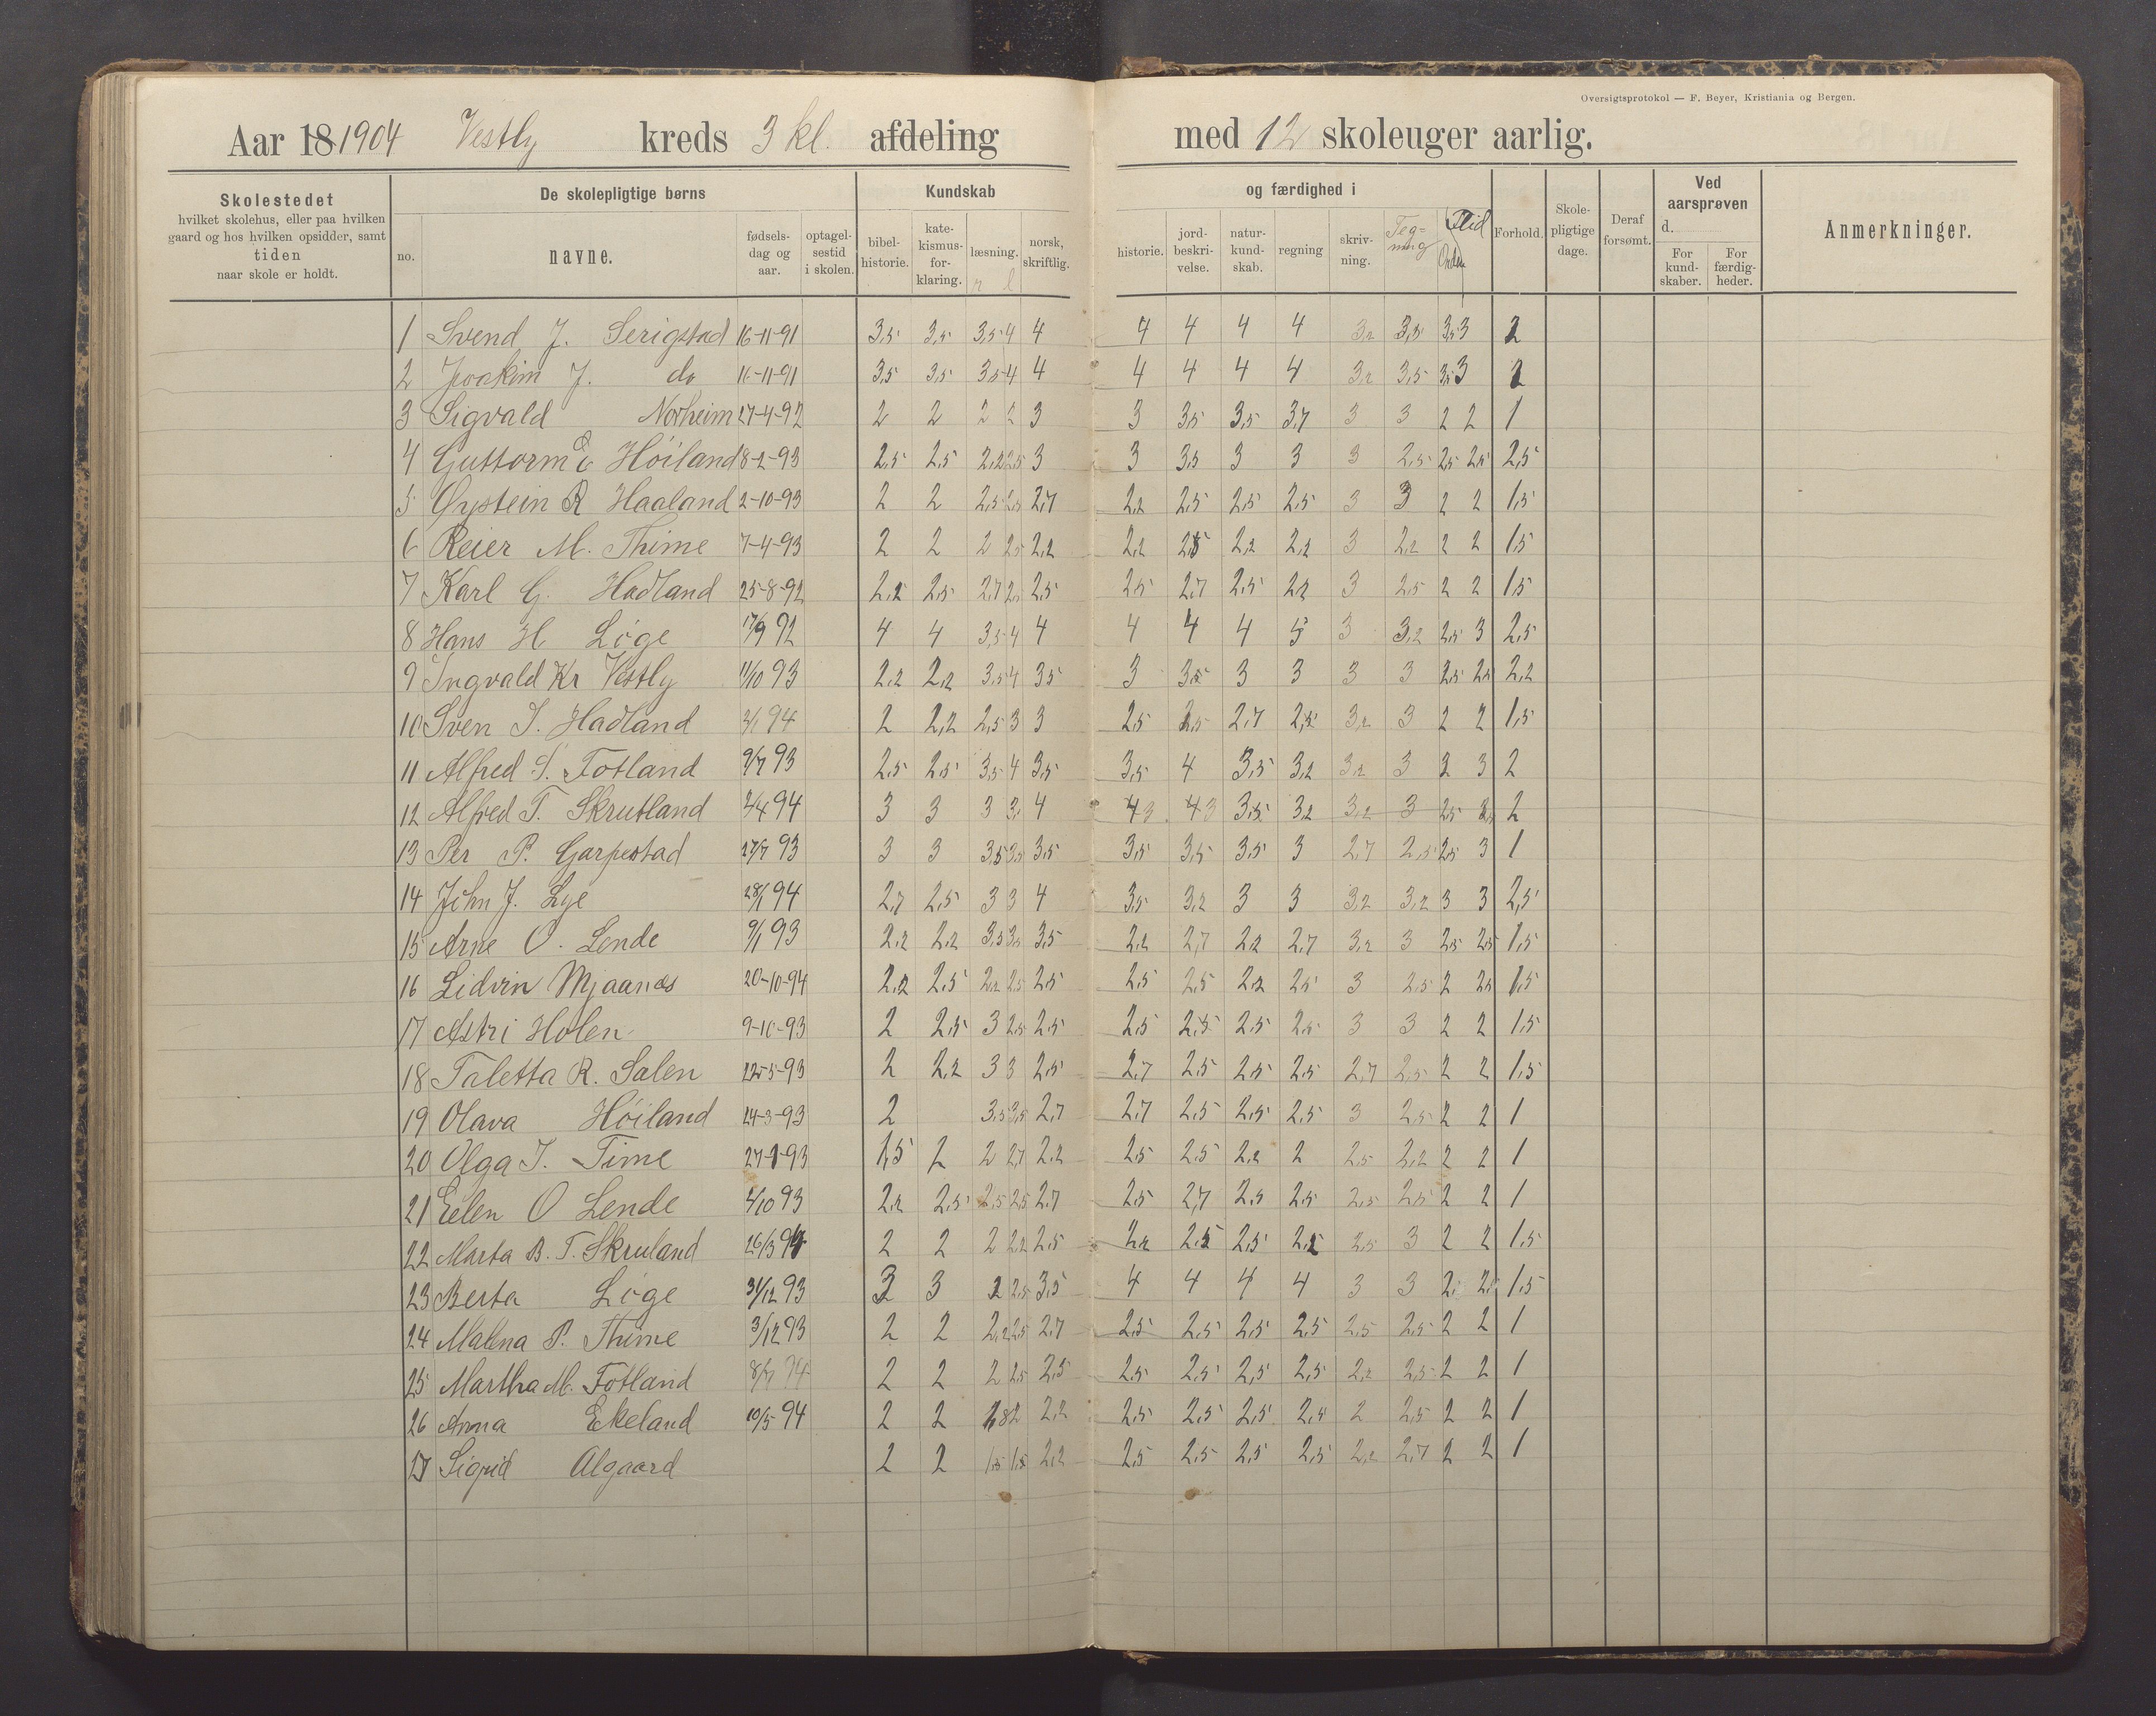 Oversigtsprotokol — F. Beyer, Kristiania og Bergen.
Aar 18 1904 Vestly kreds 3 kl. afdeling med 12 skoleuger aarlig.
Skolestedet
hvilket skolehus, eller paa hvilken
gaard og hos hvilken opsidder, samt
tiden
naar skole er holdt.
De skolepligtige børns
no.
navne.
fødsels-
dag og
aar.
optagel-
sestid
i skolen.
Kundskab
bibel-
historie.
kate-
kismus-
for-
klaring.
læsning.
r l
norsk,
skriftlig.
og færdighed i
historie.
jord-
beskri-
velse.
natur-
kund-
skab.
regning
skriv-
ning.
Teg-
ning
Flid
Orden
Forhold.
Skole-
pligtige
dage.
Deraf
forsømt.
Ved
aarsprøven
d.
For
kund-
skaber.
For
færdig-
heder.
Anmerkninger.
1 Svend J. Serigstad 16-11-91 3,5 3,5 3,5 4 4 4 4 4 4 3,2 3,5 3,5 3 2
2 Joakim J. do 16-11-91 3,5 3,5 3,5 4 4 4 4 4 4 3,2 3,5 3,5 3 2
3 Sigvald Norheim 27-4-92 2 2 2 2 3 3 3,5 3,5 3,7 3 3 2 2 1
4 Guttorm Høiland 8-2-93 2,5 2,5 2,2 2,5 3 3 3,5 3 3 3 2,5 2,5 2,5 2,5
5 Øystein R Haaland 2-10-93 2 2 2,5 2,5 2,7 2,2 2,5 2,5 2,5 3 3 2 2 1,5
6 Reier M. Thime 7-4-93 2 2 2 2,5 2,2 2,2 2,5 2,2 2,2 3 2,2 2 2 1,5
7 Karl G. Hadland 25-8-92 2,2 2,5 2,7 2,5 2,5 2,5 2,7 2,5 2,2 3 2,5 2 2 1,5
8 Hans H Løge 17/9 92 4 4 3,5 4 4 4 4 4 5 3 3,2 2,5 3 2,5
9 Ingvald Kr Vestly 11/10 93 2,2 2,2 3,5 4 3,5 3 3,5 3 3 3 3 2,5 2,5 2,2
10 Sven J. Hadland 2/1 94 2 2,2 2,5 3 3 2,5 2,5 2,7 2,5 3,2 3 2 2 1,5
11 Alfred S. Fotland 9/7 93 2,5 2,5 3,5 4 3,5 3,5 4 3,5 3,2 3,2 3 2 3 2
12 Alfred T. Skrutland 2/4 94 3 3 3 3, 4 4 3 4 3 3,5 3,2 3,2 3 2,5 2
13 Per P. Garpestad 27/7 93 3 3 3,5 3,5 3,5 3,5 3,5 3,5 3 2,7 2,5 2,5 3 1
14 John J. Lye 28/1 94 2,7 2,5 3 3 4 3,5 3,2 3 3 3,2 3,2 3 3 2,5
15 Arne O. Lende 9/1 93 2,2 2,2 3,5 3,5 3,5 2,2 2,7 2,2 2,7 3,2 3 2,5 2,5 1,5
16 Lidvin Mjaanes 20-10-94 2,2 2,5 2,2 2,5 2,5 2,5 2,5 2,2 2,5 3 2,5 2 2,5 1,5
17 Astri Holen 9-10-93 2 2,5 3 2,5 2,5 2,5 2,5 2,5 2,5 3 3 2 2 1,5
18 Taletta R. Salen 22-5-93 2 2,2 3 3 2,5 2,7 2,5 2,5 2,5 2,7 2,5 2 2 1,5
19 Olava Høiland 24-3-93 2 3,5 3,5 2,7 2,7 2,5 2,5 2,5 3 2,5 2 2 1
20 Olga J. Time 27-1-93 1,5 2 2 2,7 2,2 2,5 2,5 2,2 2 2,5 2,2 2 2 1
21 Eelen O Lende 2/10 93 2,2 2,5 2,5 2,5 2,7 2,5 2,7 2,5 2,5 2,5 2,5 2 2 1
22 Marta B. T. Skruland 26/3 94 2 2 2 2,2 2,5 2,2 2,5 2,5 2,2 2,5 3 2 2 1,5
23 Berta Løge 31/12 93 3 3 2 2,5 3,5 4 4 4 4 3 3 2, 2, 1,5
24 Malena P. Thime 3/12 93 2 2 2,2 2,5 2,7 2,5 2,5 2,5 2,5 2,5 2,5 2 2 1
25 Martha M. Fotland 8/7 94 2 2 2 2,5 2,5 2,5 2,5 2,5 2,5 2,2 2,5 2 2 1
26 Anna Ekeland 10/5 94 2 2 1,8 2 2,2 2,5 2,5 2,5 2,5 2 2,5 2 2 1
27 Sigrid Algaard 2 2 1,5 1,8 2,2 2,5 2,5 2,5 2,5 2,2 2,7 2 2 1